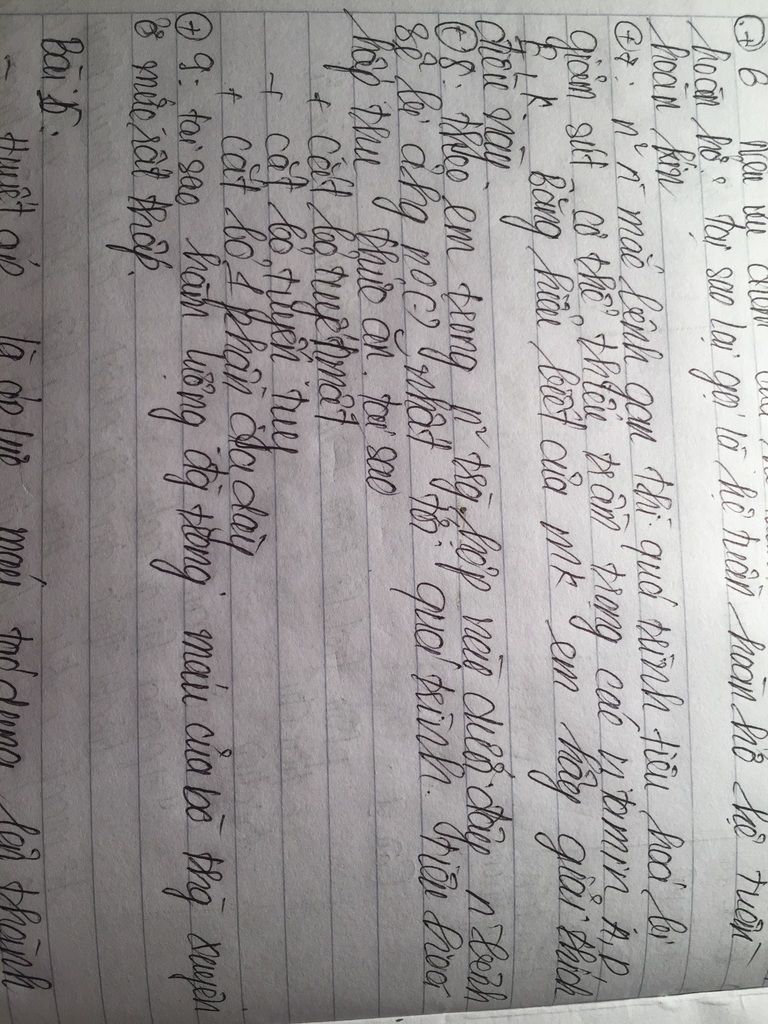 (+) 6 nêu ưu điểm của hệ
hoàn hở. Tại sao lại gọi là hệ tuần hoàn hở hệ tuần
hoàn kín
(+) 7: n² n` mắc bệnh gan thì quá trình tiêu hoá bị
giảm sút có thể thiếu trầm trọng các vitamin A, D
E, K. Bằng hiểu biết của mk em hãy giải thích
điều này.
(+) 8: theo em trong n² trg hợp nào dưới đây n` bệnh
sẽ bị ảhg n(?) nhất tới quá trình. tiêu hoá
hấp thu thức ăn. tại sao
+ cắt bỏ túi mật
+ cắt bỏ tuyến tuỵ
+ cắt bỏ 1 phần dạ dày
(+) 9: tại sao hàm lượng đg trong máu của bò thg xuyên
ở mức rất thấp.
Bài 5:
- Huyết áp là áp lực máu tác dụng lên thành